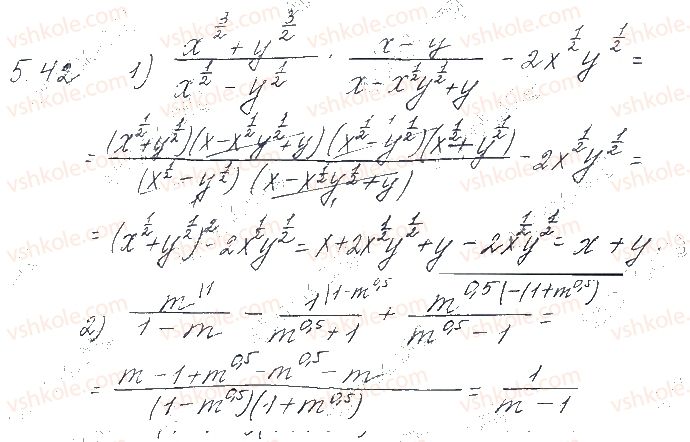 5.42 1) \frac{x^{\frac{3}{2}} + y^{\frac{3}{2}}}{x^{\frac{1}{2}} - y^{\frac{1}{2}}} \cdot \frac{x - y}{x - x^{\frac{1}{2}}y^{\frac{1}{2}} + y} - 2x^{\frac{1}{2}}y^{\frac{1}{2}} =
= \frac{(x^{\frac{1}{2}} + y^{\frac{1}{2}})(x - x^{\frac{1}{2}}y^{\frac{1}{2}} + y)(x^{\frac{1}{2}} - y^{\frac{1}{2}})(x^{\frac{1}{2}} + y^{\frac{1}{2}})}{(x^{\frac{1}{2}} - y^{\frac{1}{2}})(x - x^{\frac{1}{2}}y^{\frac{1}{2}} + y)} - 2x^{\frac{1}{2}}y^{\frac{1}{2}} =
= (x^{\frac{1}{2}} + y^{\frac{1}{2}})^2 - 2x^{\frac{1}{2}}y^{\frac{1}{2}} = x + 2x^{\frac{1}{2}}y^{\frac{1}{2}} + y - 2x^{\frac{1}{2}}y^{\frac{1}{2}} = x + y.
2) \frac{m^{|1}}{1 - m} - \frac{1^{|1 - m^{0,5}}}{m^{0,5} + 1} + \frac{m^{0,5 (-(1 + m^{0,5})}}{m^{0,5} - 1} =
= \frac{m - 1 + m^{0,5} - m^{0,5} - m}{(1 - m^{0,5})(1 + m^{0,5})} = \frac{1}{m - 1}